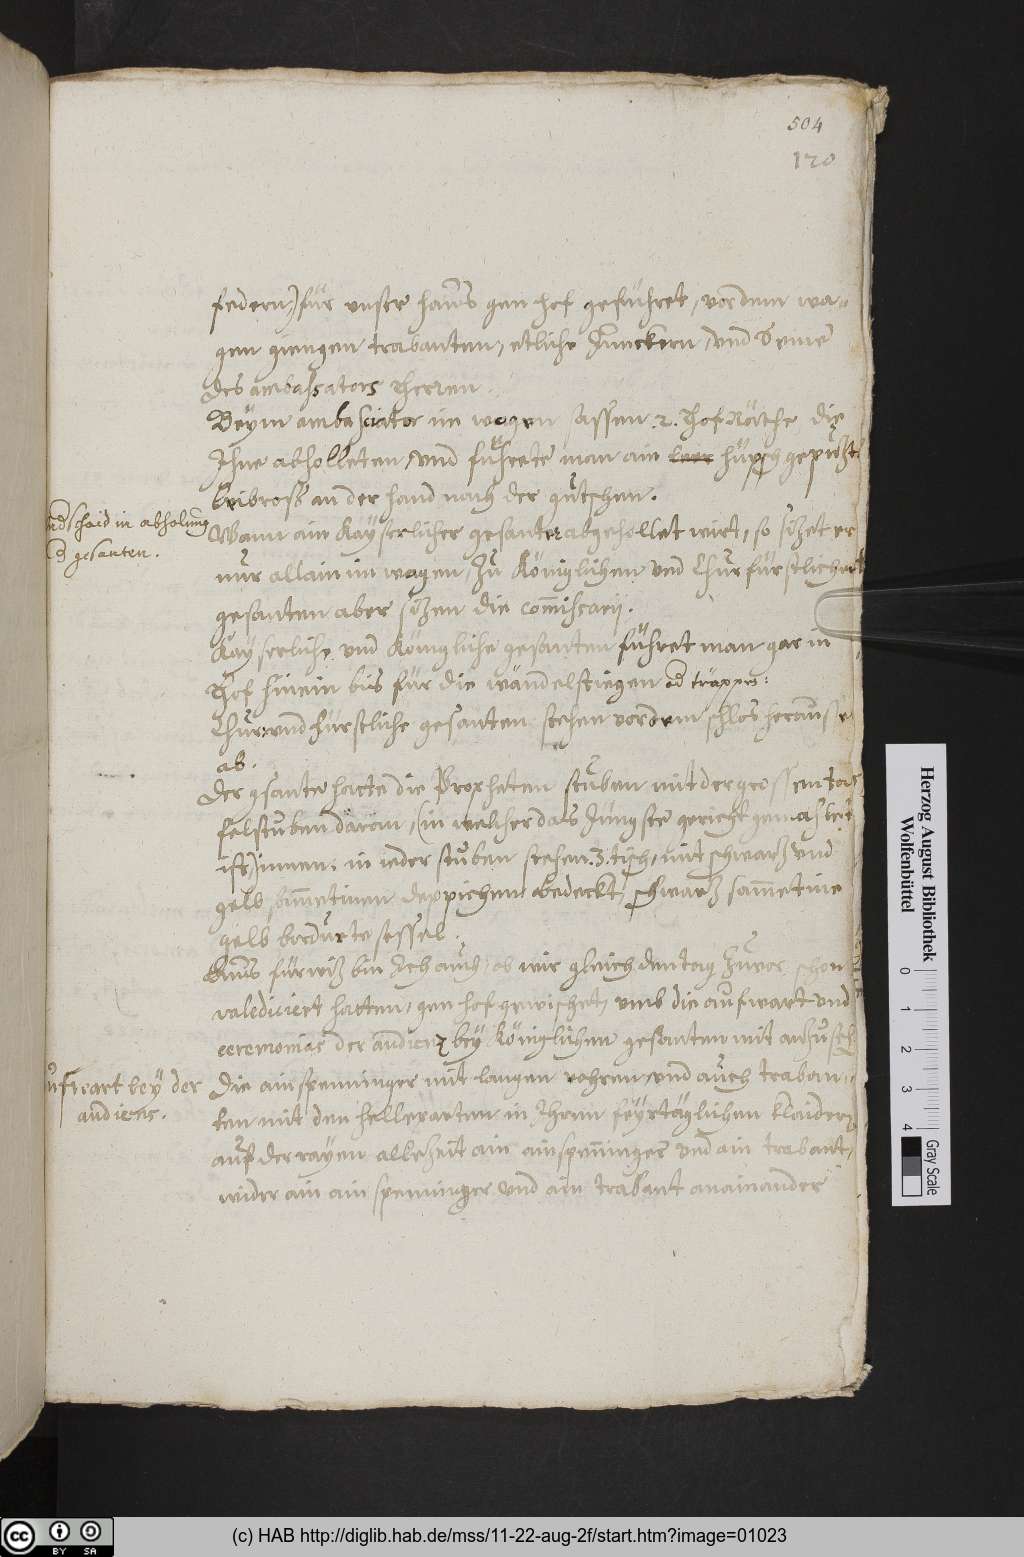 504
120
federn,) für unsre haus gen hof geführet, vor dem wa-
gen giengen trabanten, etliche Junckern, und Seine
des ambassators Herren.
Beym ambasciator im wagen sassen .2. Hof Räthe, die
Ihne abholleten, und führete man ain hüpsch gepuzt
leibross an der hand nach der gutschen.
schaid in abholung
gesanten.
Wann ain Kayserlicher gesanter abgehollet wirt, so sizet er
nur allain im wagen, Zu Königlichen und Churfürstlichen
gesanten aber sizen die Commissarij.
Kayserliche und Königliche gesanten führet man gar in
Hof hinein bis für die wändelstiegen od träppen:
Chur: und fürstliche gesanten, stehen vor dem schlos heraussen
ab.
Der gsante hatte die Propheten stuben mit der grossen taf
felstuben daran, (in welcher das Jüngste gericht gemahlet
ist) innen. in ieder stuben stehen .3. tisch, mit schwarz und
gelb sammetinen deppichen bedeckt, schwarz sammetine
gelb bordurte sessel.
Aus fürwiz bin Ich auch, ob wir gleich den tag Zuvor schon
valediciert hatten, gen hof gewischet, umb die aufwart und
ceremonias der audienz bey Königlichen gesanten mit anzusehen
ufwart bey der
audienz.
Die ainspenninger mit langen rohren, und auch traban-
ten mit den helleparten in Ihren feyrtäglichen klaidern
auf der rayen allezeit ain ainspenninger und ain trabant,
wider ain ainspenninger und ain trabant anainander
Herzog August Bibliothek
Wolfenbüttel
0 1 2 3 4
Gray Scale
CC BY SA
(c) HAB http://diglib.hab.de/mss/11-22-aug-2f/start.htm?image=01023